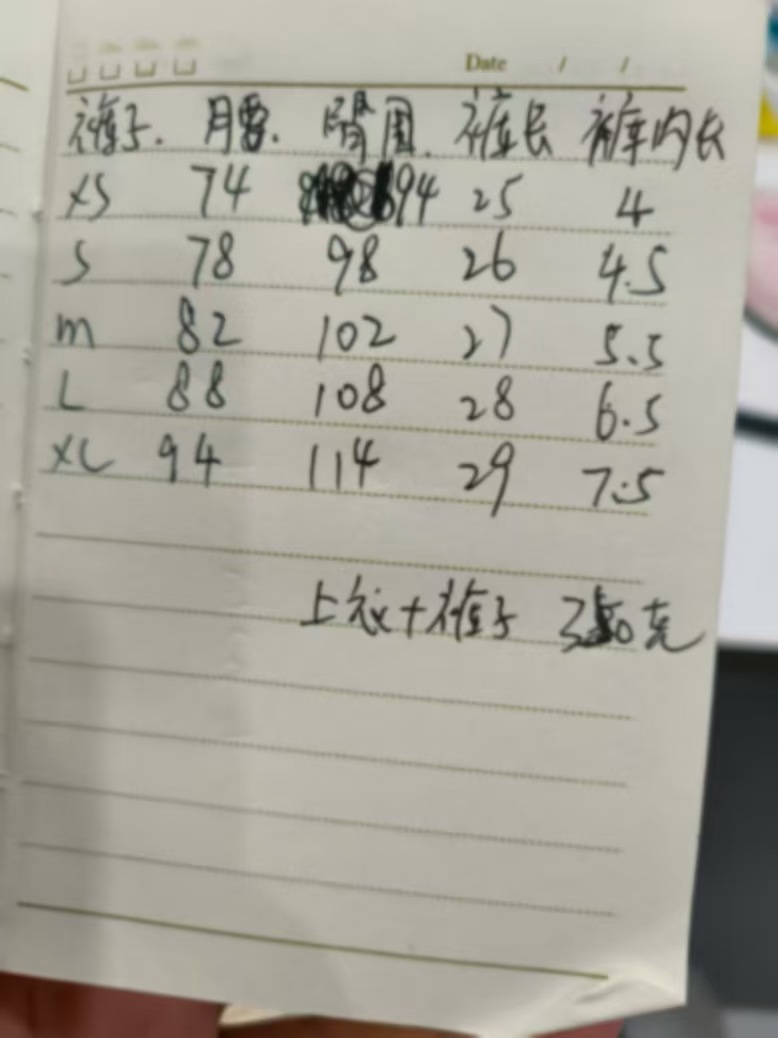 Date / /
裤子. 腰. 臀围. 裤长 裤内长
XS 74 94 25 4
S 78 98 26 4.5
m 82 102 27 5.5
L 88 108 28 6.5
XL 94 114 29 7.5
上衣+裤子 350克